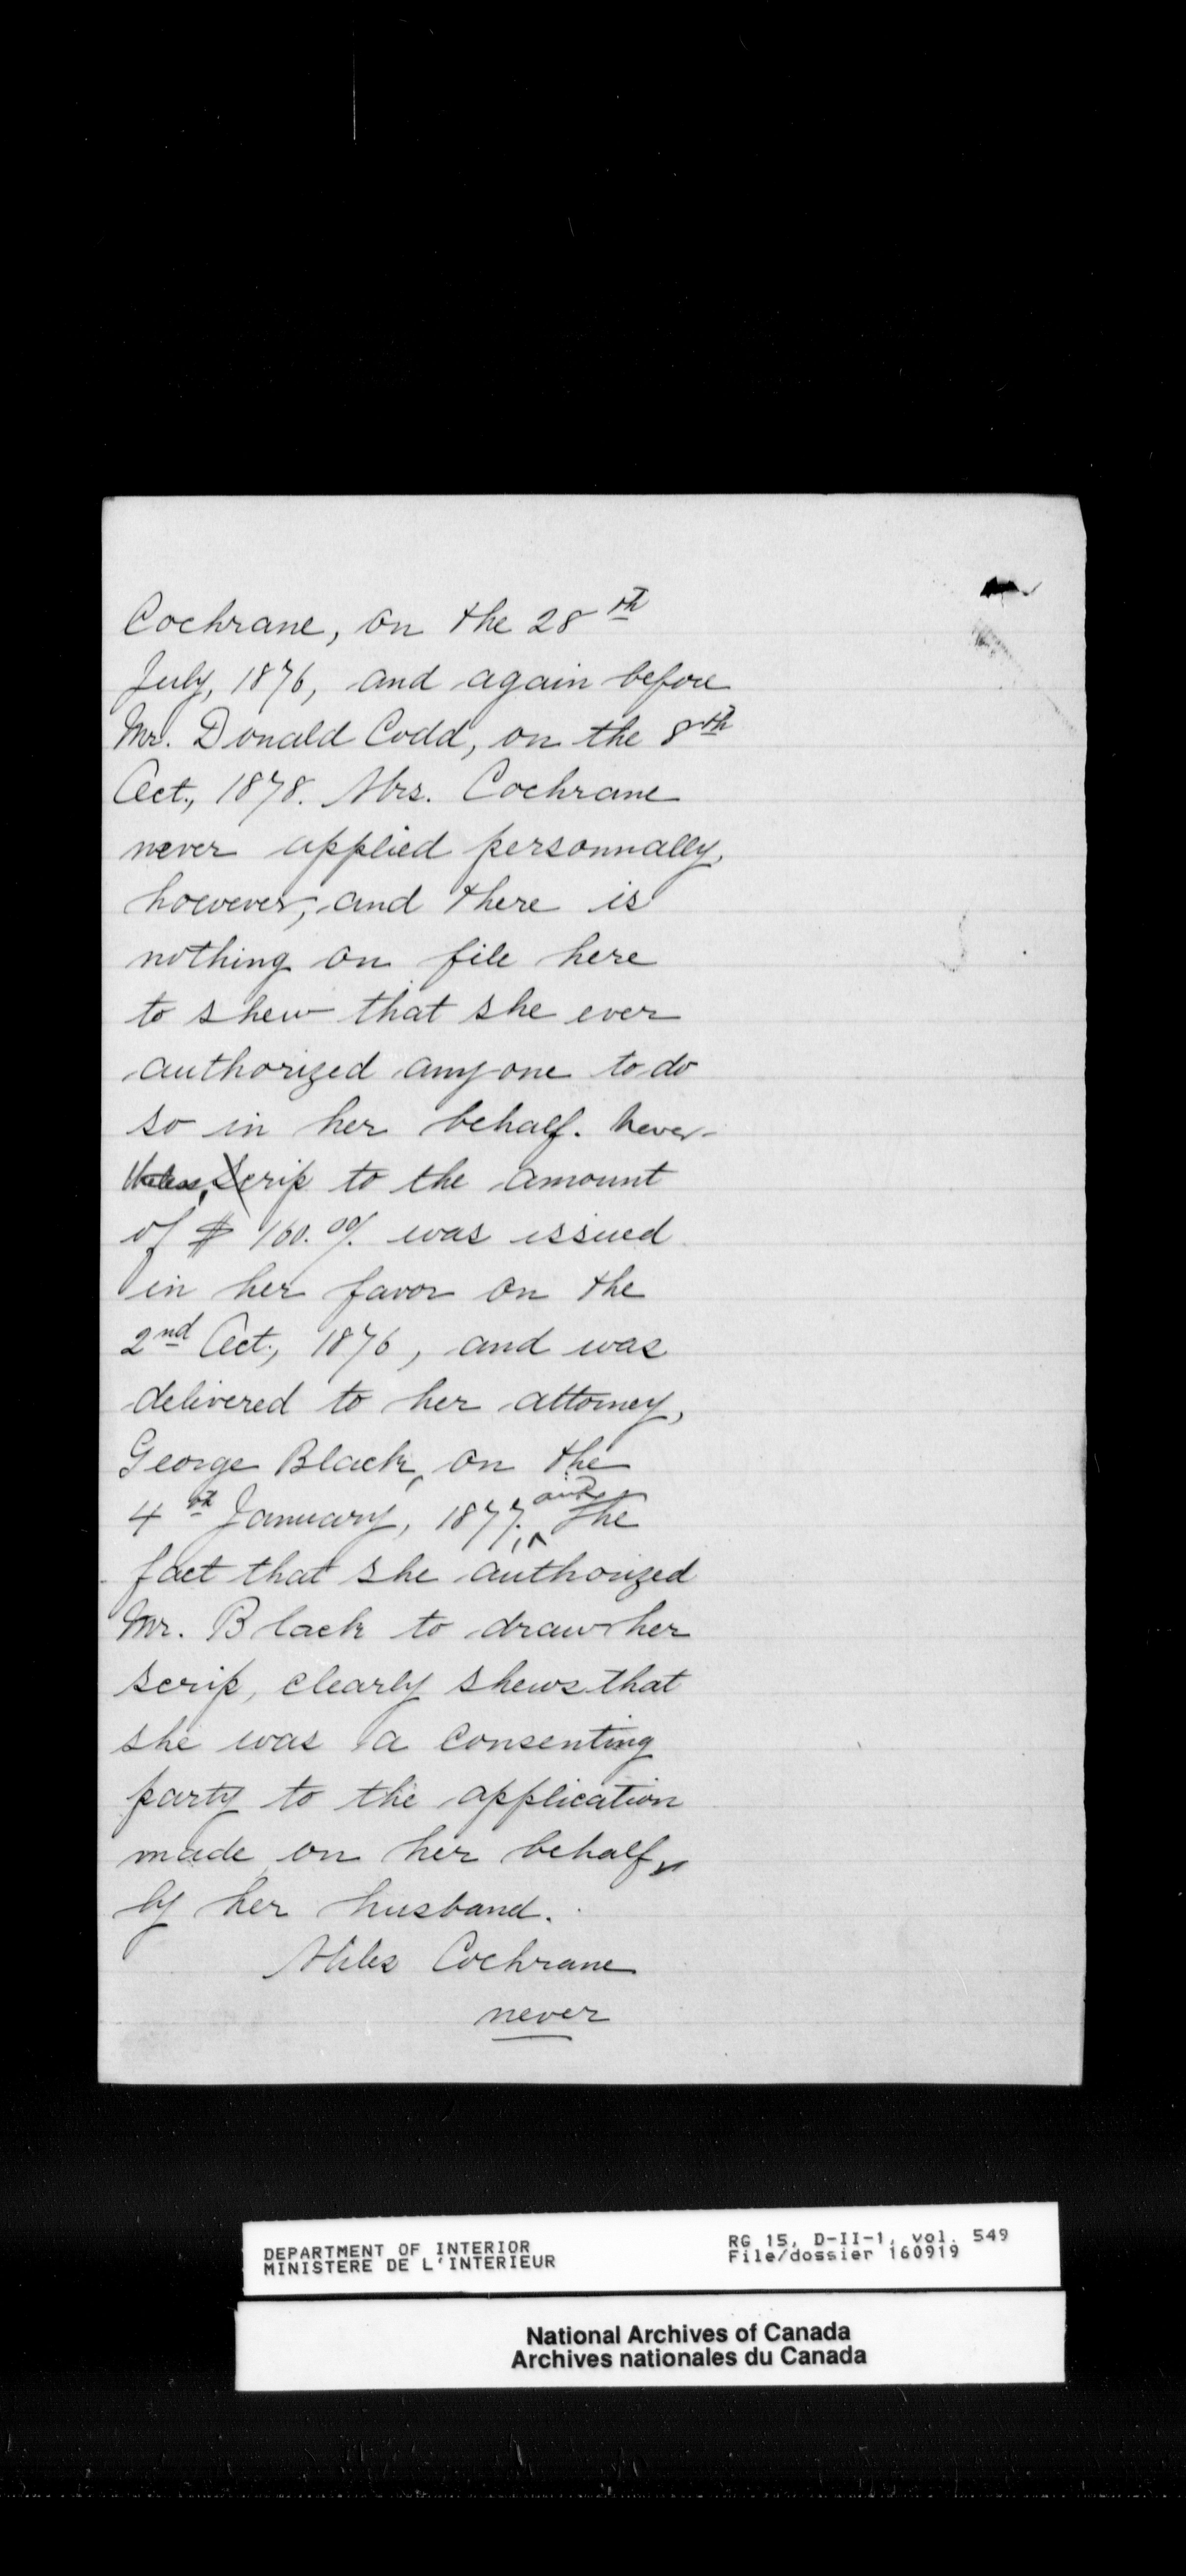 Cochrane, on the 28th
July, 1876, and again before
Mr. Donald Codd, on the 8th
Oct., 1878. Mrs. Cochrane
never applied personnally,
however, and there is
nothing on file here
to shew that she ever
authorized anyone to do
so in her behalf. Never-
theless, Scrip to the amount
of $160.00/. was issued
in her favor on the
2nd Oct., 1876, and was
delivered to her attorney,
George Black, on the
4th January, 1877, and the
fact that she authorized
Mr. Black to draw her
scrip, clearly shews that
she was a consenting
party to the application
made on her behalf,
by her husband.
Miles Cochrane
never
DEPARTMENT OF INTERIOR
MINISTERE DE L'INTERIEUR
RG 15, D-II-1, vol. 549
File/dossier 160919
National Archives of Canada
Archives nationales du Canada